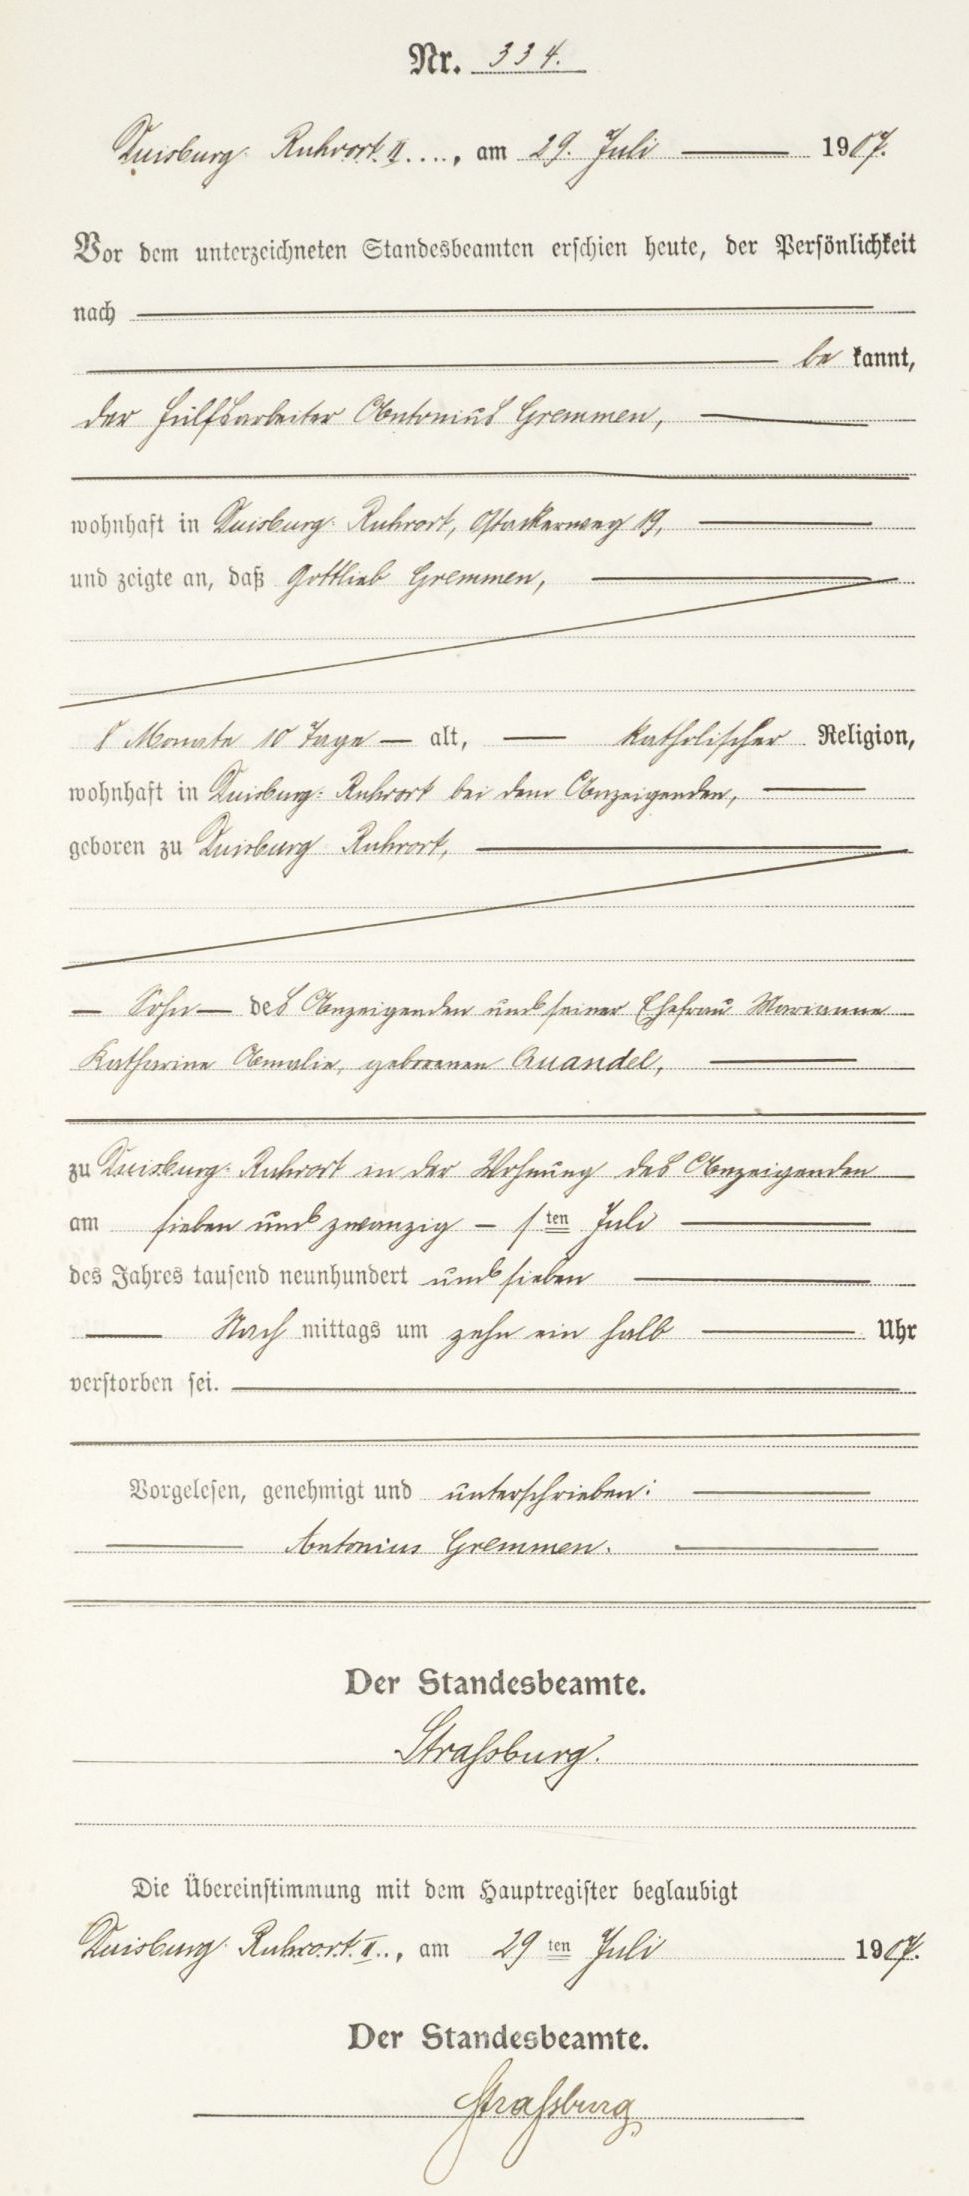 Nr. 334.
Duisburg-Ruhrort II...., am 29. Juli 1907.
Vor dem unterzeichneten Standesbeamten erschien heute, der Persönlichkeit
nach
be kannt,
der Hülfsarbeiter Antonius Gremmen,
wohnhaft in Duisburg-Ruhrort, Ostackerweg 19,
und zeigte an, daß Gottlieb Gremmen,
8 Monate 10 Tage — alt, — katholischer Religion,
wohnhaft in Duisburg-Ruhrort bei dem Anzeigenden,
geboren zu Duisburg-Ruhrort,
— Sohn — des Anzeigenden und seiner Ehefrau Marianne
Katharina Amalie, geborenen Quandel,
zu Duisburg-Ruhrort in der Wohnung des Anzeigenden
am sieben und zwanzig – sten Juli
des Jahres tausend neunhundert und sieben
Nach mittags um zehn ein halb Uhr
verstorben sei.
Vorgelesen, genehmigt und unterschrieben:
Antonius Gremmen.
Der Standesbeamte.
Straßburg.
Die Übereinstimmung mit dem Hauptregister beglaubigt
Duisburg-Ruhrort II.., am 29 ten Juli 1907.
Der Standesbeamte.
Straßburg